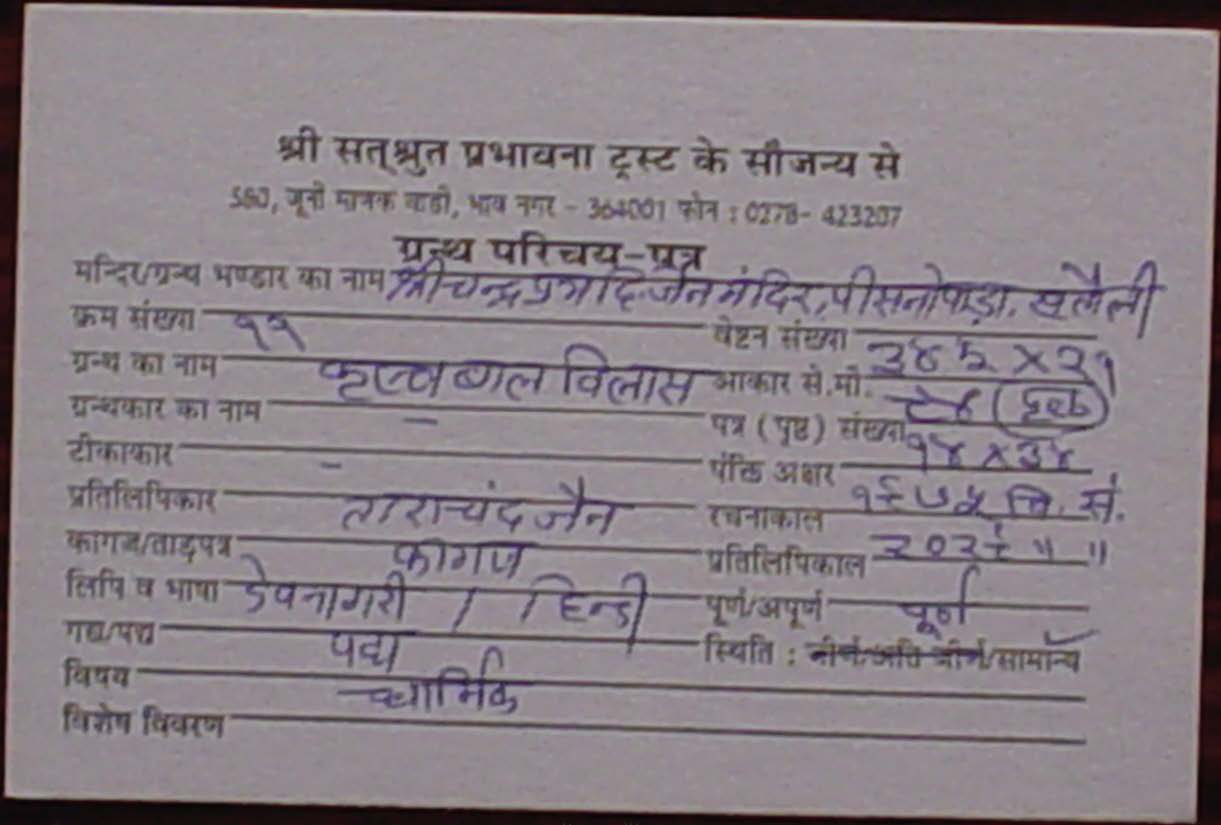 श्री सत्श्रुत प्रभावना ट्रस्ट के सौजन्य से
580, जूनी माणक वाडी, भाव नगर - 364001 फोन : 0278- 423207
ग्रन्थ परिचय-पत्र
मन्दिर/ग्रन्थ भण्डार का नाम श्री चन्द्रप्रभ दि. जैन मंदिर,
क्रम संख्या ११ वेष्टन संख्या
ग्रन्थ का नाम विलास आकार से.मी.
ग्रन्थकार का नाम - पत्र (पृष्ठ) संख्या
टीकाकार - पंक्ति अक्षर १४ X ३४
प्रतिलिपिकार ताराचंद जैन रचनाकाल वि. सं.
कागज/ताड़पत्र कागज प्रतिलिपिकाल " "
लिपि व भाषा देवनागरी / हिन्दी पूर्ण/अपूर्ण पूर्ण
गद्य/पद्य पद्य स्थिति : जीर्ण/अति जीर्ण/सामान्य
विषय धार्मिक
विशेष विवरण